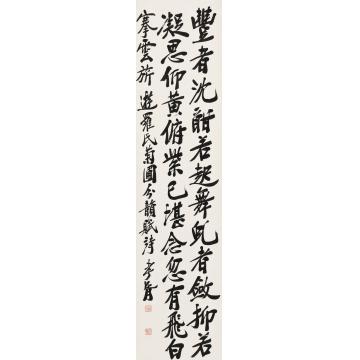 豐者沈酣若起舞者斂抑若
凝思仰黃俯紫已湛念忽有飛白
搴雲旂 遊羅氏菊園分韻賦詩 孝胥